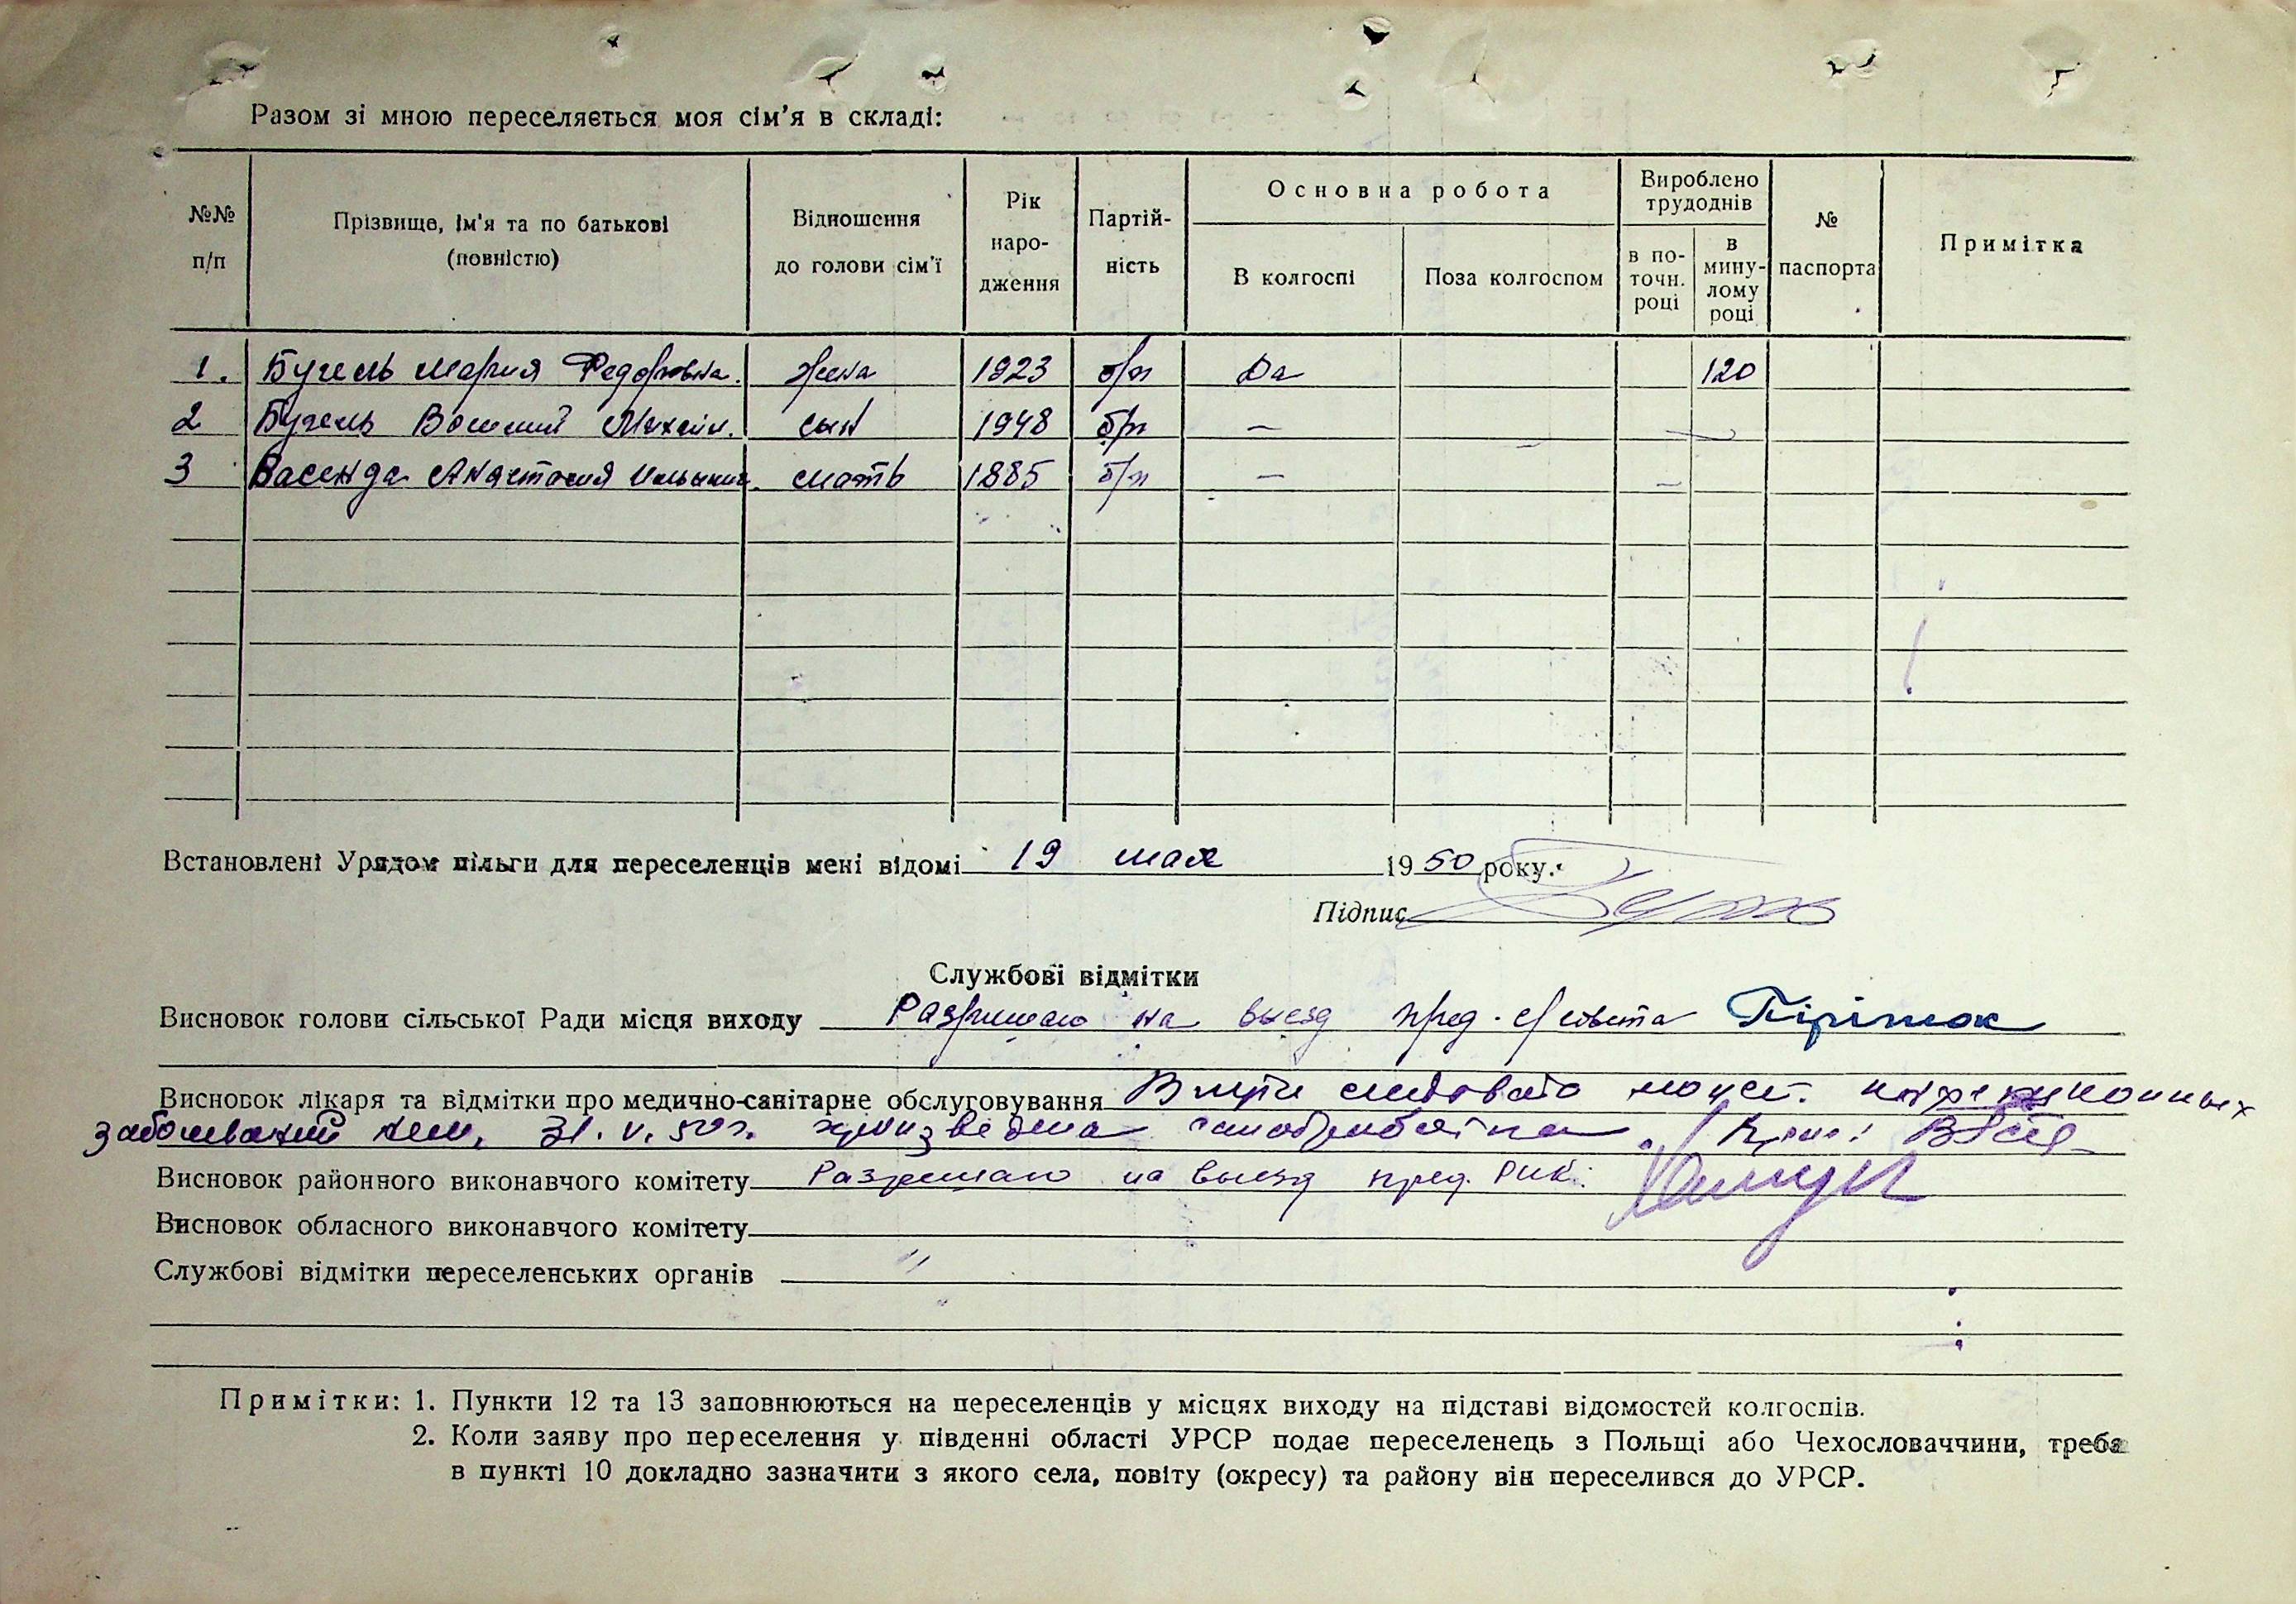 Разом зі мною переселяється моя сім'я в складі:
№№ п/п
Прізвище, ім'я та по батькові (повністю)
Відношення до голови сім'ї
Рік народження
Партійність
Основна робота
В колгоспі
Поза колгоспом
Вироблено трудоднів
в поточн. році
в минулому році
№ паспорта
Примітка
1. Бугель Мария Федоровна. жена 1923 б/п Да 120
2 Бугель Василий Михайл. сын 1948 б/п —
3 Васенда Анастасия мать 1885 б/п — —
Встановлені Урядом пільги для переселенців мені відомі 19 мая 1950 року.
Підпис
Службові відмітки
Висновок голови сільської Ради місця виходу Разрешаю на выезд пред. с/совета
Висновок лікаря та відмітки про медично-санітарне обслуговування В пути следовать может. инфекционных
заболеваний нет. 31.V.50г. произведена санобработка. Врач:
Висновок районного виконавчого комітету Разрешаю на выезд пред. РИК:
Висновок обласного виконавчого комітету
Службові відмітки переселенських органів
Примітки: 1. Пункти 12 та 13 заповнюються на переселенців у місцях виходу на підставі відомостей колгоспів.
2. Коли заяву про переселення у південні області УРСР подає переселенець з Польщі або Чехословаччини, треба
в пункті 10 докладно зазначити з якого села, повіту (окресу) та району він переселився до УРСР.